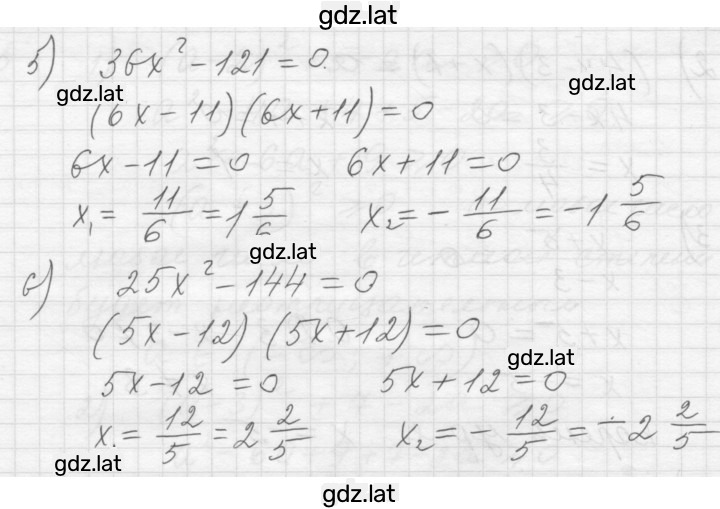 gdz.lat
5) 36x² - 121 = 0.
gdz.lat
gdz.lat
(6x - 11)(6x + 11) = 0
6x - 11 = 0 6x + 11 = 0
x₁ = 11/6 = 1 5/6 x₂ = - 11/6 = -1 5/6
gdz.lat
6) 25x² - 144 = 0
(5x - 12) (5x + 12) = 0
gdz.lat
5x - 12 = 0 5x + 12 = 0
x. = 12/5 = 2 2/5 x₂ = - 12/5 = -2 2/5
gdz.lat
gdz.lat